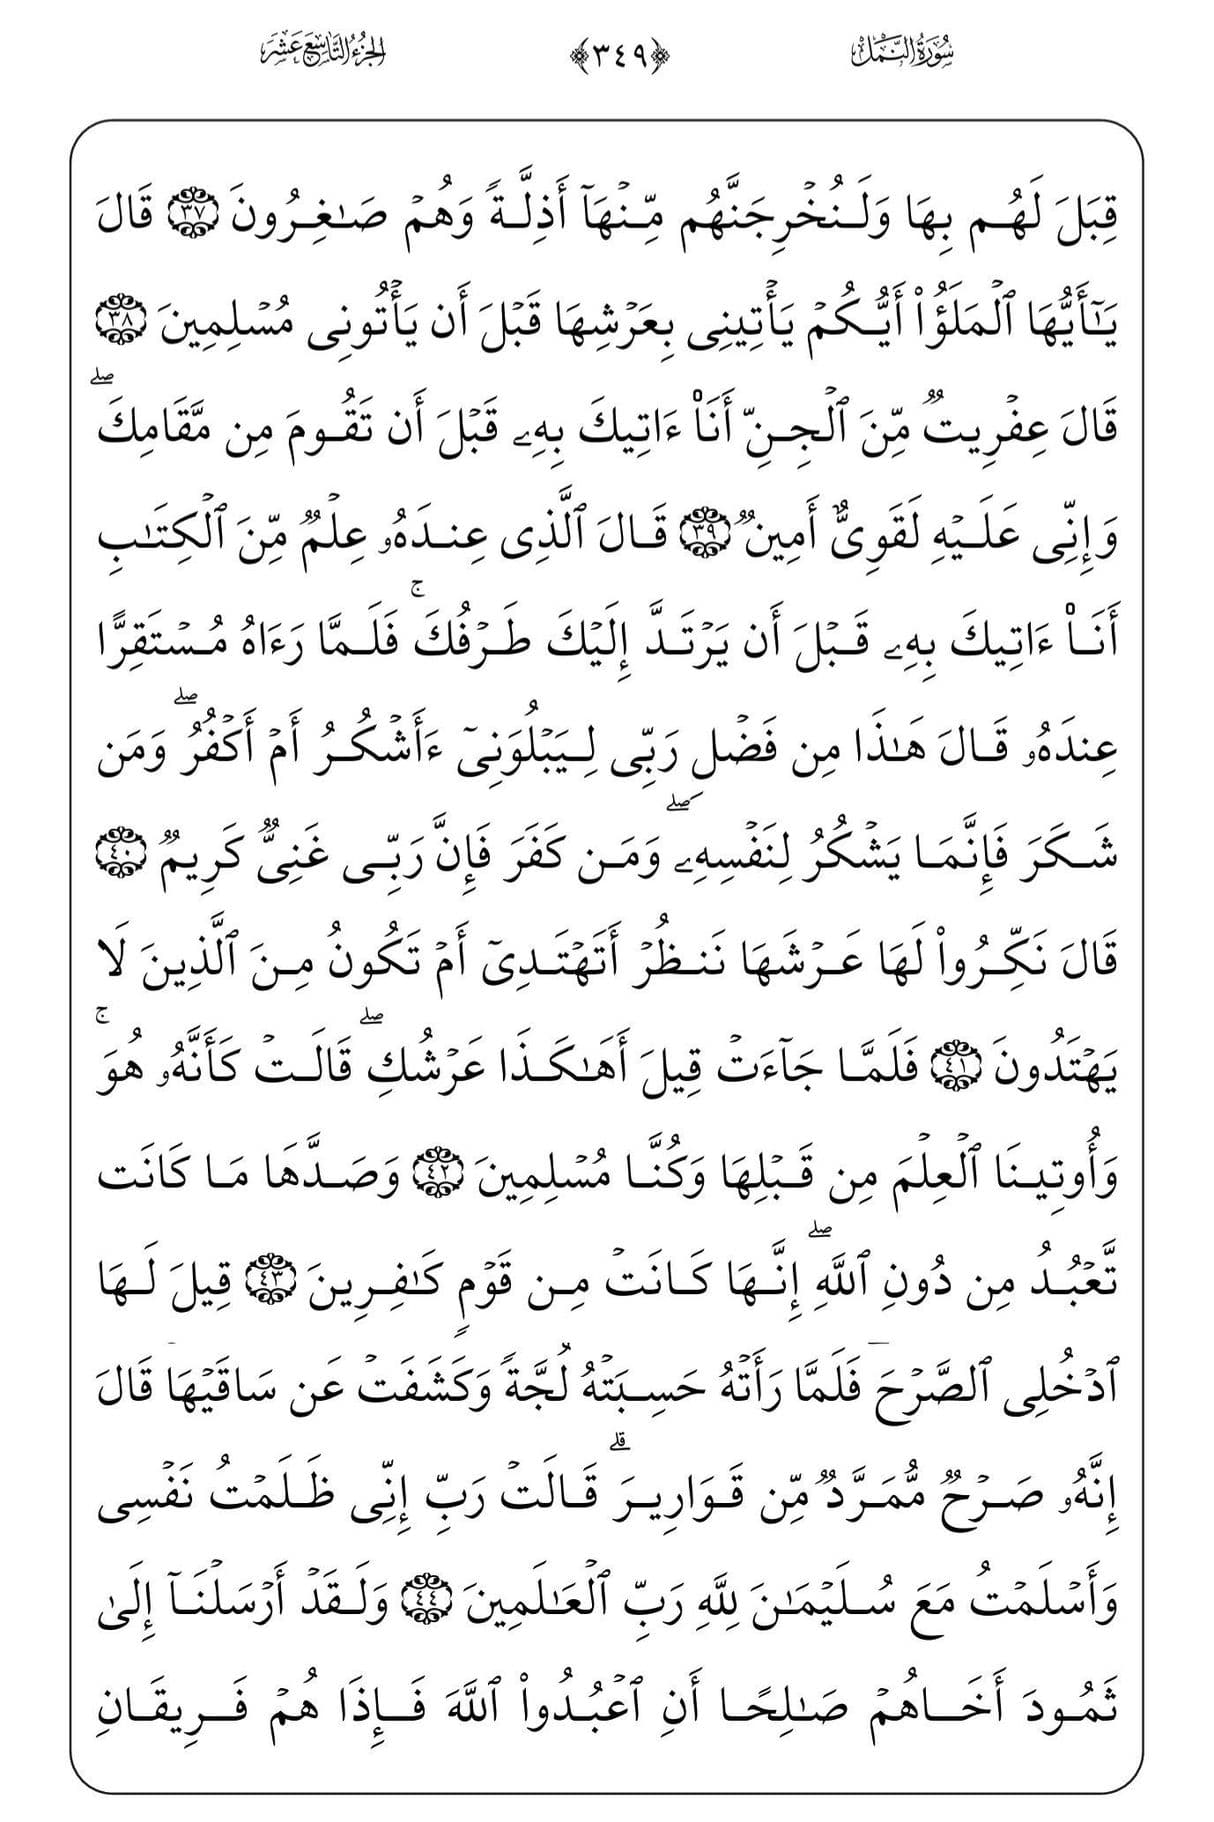 سُورَةُ النَّمْلِ ﴿٣٤٩﴾ الجُزْءُ التَّاسِعَ عَشَرَ
قِبَلَ لَهُم بِهَا وَلَنُخْرِجَنَّهُم مِّنْهَآ أَذِلَّةً وَهُمْ صَـٰغِرُونَ ٣٧ قَالَ
يَـٰٓأَيُّهَا ٱلْمَلَؤُا۟ أَيُّكُمْ يَأْتِينِى بِعَرْشِهَا قَبْلَ أَن يَأْتُونِى مُسْلِمِينَ ٣٨
قَالَ عِفْرِيتٌ مِّنَ ٱلْجِنِّ أَنَا۠ ءَاتِيكَ بِهِۦ قَبْلَ أَن تَقُومَ مِن مَّقَامِكَ ۖ
وَإِنِّى عَلَيْهِ لَقَوِىٌّ أَمِينٌ ٣٩ قَالَ ٱلَّذِى عِندَهُۥ عِلْمٌ مِّنَ ٱلْكِتَـٰبِ
أَنَا۠ ءَاتِيكَ بِهِۦ قَبْلَ أَن يَرْتَدَّ إِلَيْكَ طَرْفُكَ ۚ فَلَمَّا رَءَاهُ مُسْتَقِرًّا
عِندَهُۥ قَالَ هَـٰذَا مِن فَضْلِ رَبِّى لِيَبْلُوَنِىٓ ءَأَشْكُرُ أَمْ أَكْفُرُ ۖ وَمَن
شَكَرَ فَإِنَّمَا يَشْكُرُ لِنَفْسِهِۦ ۖ وَمَن كَفَرَ فَإِنَّ رَبِّى غَنِىٌّ كَرِيمٌ ٤٠
قَالَ نَكِّرُوا۟ لَهَا عَرْشَهَا نَنظُرْ أَتَهْتَدِىٓ أَمْ تَكُونُ مِنَ ٱلَّذِينَ لَا
يَهْتَدُونَ ٤١ فَلَمَّا جَآءَتْ قِيلَ أَهَـٰكَذَا عَرْشُكِ ۖ قَالَتْ كَأَنَّهُۥ هُوَ ۚ
وَأُوتِينَا ٱلْعِلْمَ مِن قَبْلِهَا وَكُنَّا مُسْلِمِينَ ٤٢ وَصَدَّهَا مَا كَانَت
تَّعْبُدُ مِن دُونِ ٱللَّهِ ۖ إِنَّهَا كَانَتْ مِن قَوْمٍ كَـٰفِرِينَ ٤٣ قِيلَ لَهَا
ٱدْخُلِى ٱلصَّرْحَ فَلَمَّا رَأَتْهُ حَسِبَتْهُ لُجَّةً وَكَشَفَتْ عَن سَاقَيْهَا قَالَ
إِنَّهُۥ صَرْحٌ مُّمَرَّدٌ مِّن قَوَارِيرَ ۗ قَالَتْ رَبِّ إِنِّى ظَلَمْتُ نَفْسِى
وَأَسْلَمْتُ مَعَ سُلَيْمَـٰنَ لِلَّهِ رَبِّ ٱلْعَـٰلَمِينَ ٤٤ وَلَقَدْ أَرْسَلْنَآ إِلَىٰ
ثَمُودَ أَخَاهُمْ صَـٰلِحًا أَنِ ٱعْبُدُوا۟ ٱللَّهَ فَإِذَا هُمْ فَرِيقَانِ